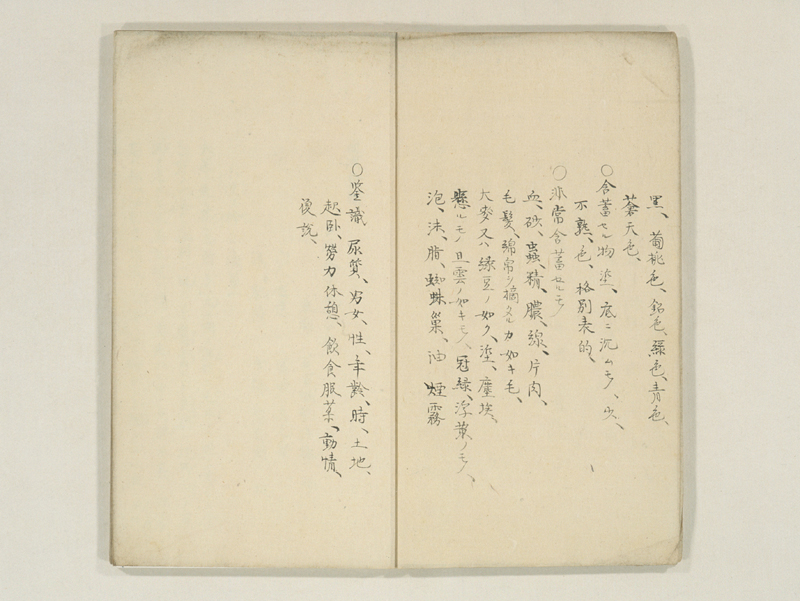 黒、葡桃色、鉛色、緑色、青色、
蒼天色、
○含蓄セル物、滓、底ニ沉ムモノ、火、
不熟、色、格別表的、
○非常含蓄セルモノ
血、砂、蟲、精、膿、線、片肉、
毛髪、綿帛ヲ摘タルカ如キ毛、
大麥又ハ緑豆ノ如ク、滓、塵埃、
懸ルモノ旦雲ノ如キモノ、冠緑、浮萍ノモノ、
泡、沫、脂、蜘蛛巣、油、煙霧
○鉴識 尿質、男女、性、年齢、時、土地、
起卧、勞力休憩、飲食服薬、動情、
復説、